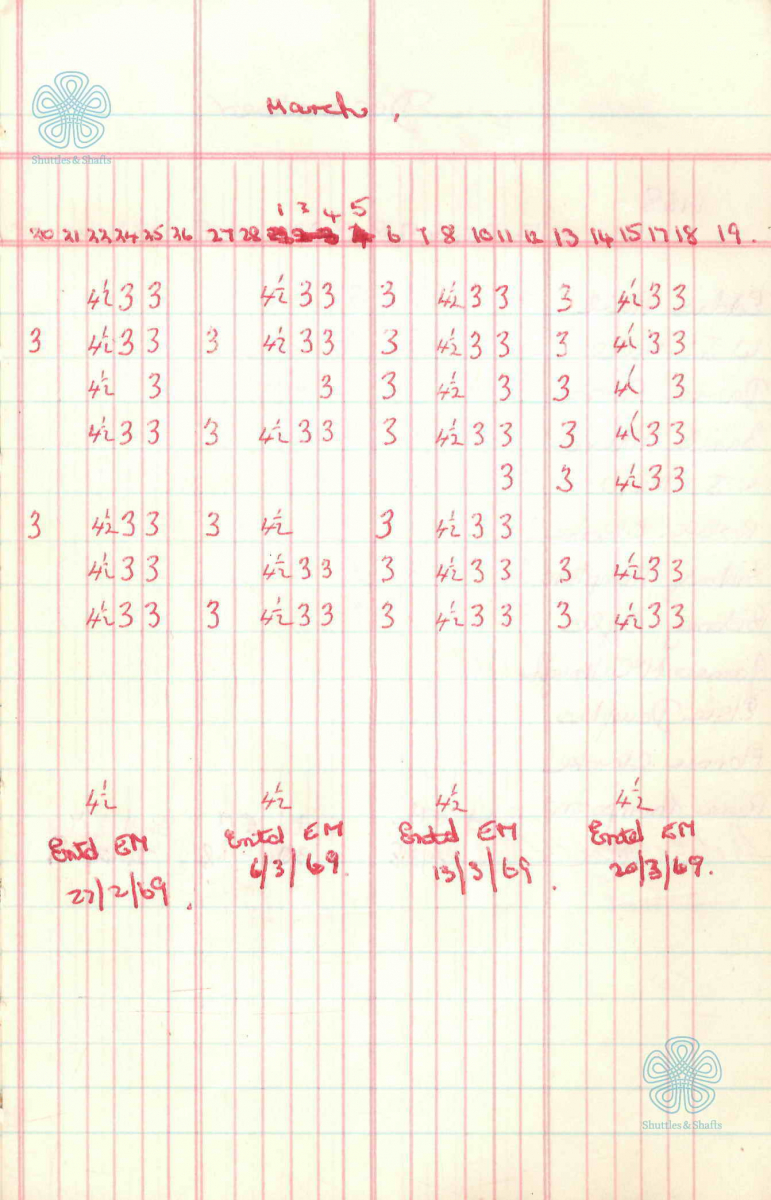 March,
Shuttles & Shafts
1 3 4 5
20 21 22 24 25 26 27 28 6 7 8 10 11 12 13 14 15 17 18 19.
4½ 3 3 4½ 3 3 3 4½ 3 3 3 4½ 3 3
3 4½ 3 3 3 4½ 3 3 3 4½ 3 3 3 4½ 3 3
4½ 3 3 3 4½ 3 3 4½ 3
4½ 3 3 3 4½ 3 3 3 4½ 3 3 3 4½ 3 3
3 3 4½ 3 3
3 4½ 3 3 3 4½ 3 4½ 3 3
4½ 3 3 4½ 3 3 3 4½ 3 3 3 4½ 3 3
4½ 3 3 3 4½ 3 3 3 4½ 3 3 3 4½ 3 3
4½ 4½ 4½ 4½
Entd EM Entd EM Entd EM Entd EM
27/2/69. 6/3/69. 13/3/69. 20/3/69.
Shuttles & Shafts